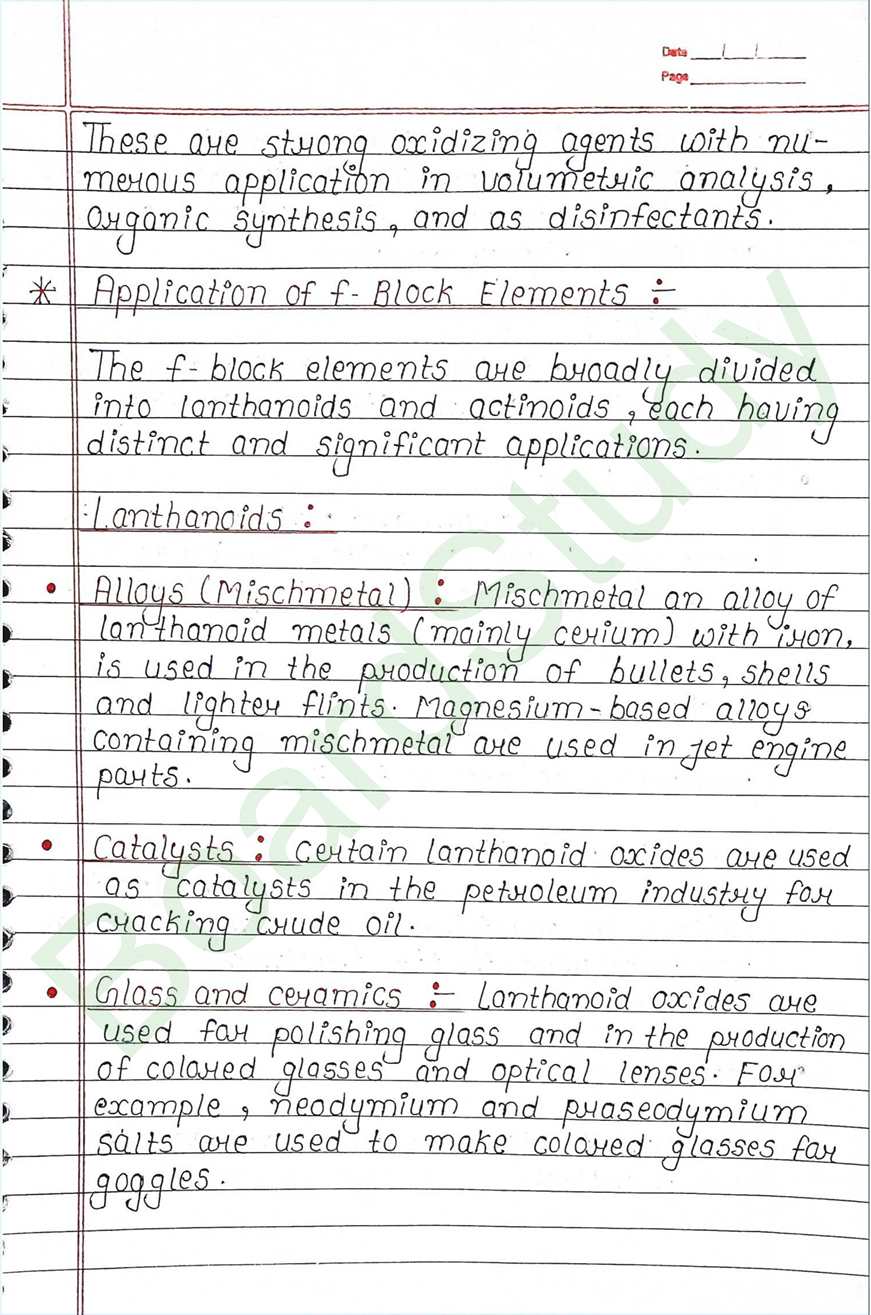 Date / /
Page
These are strong oxidizing agents with nu-
merous application in volumetric analysis,
organic synthesis, and as disinfectants.
* Application of f- Block Elements :-
The f- block elements are broadly divided
into lanthanoids and actinoids, each having
distinct and significant applications.
Lanthanoids :
• Alloys (Mischmetal) : Mischmetal an alloy of
lanthanoid metals (mainly cerium) with iron,
is used in the production of bullets, shells
and lighter flints. Magnesium-based alloys
containing mischmetal are used in jet engine
parts.
• Catalysts : certain lanthanoid oxides are used
as catalysts in the petroleum industry for
cracking crude oil.
• Glass and ceramics :- Lanthanoid oxides are
used for polishing glass and in the production
of colored glasses and optical lenses. For
example, neodymium and praseodymium
salts are used to make colored glasses for
goggles.
BoardStudy